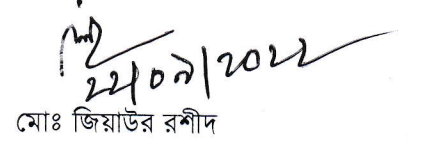 ২২|০৯|২০২২
মোঃ জিয়াউর রশীদ